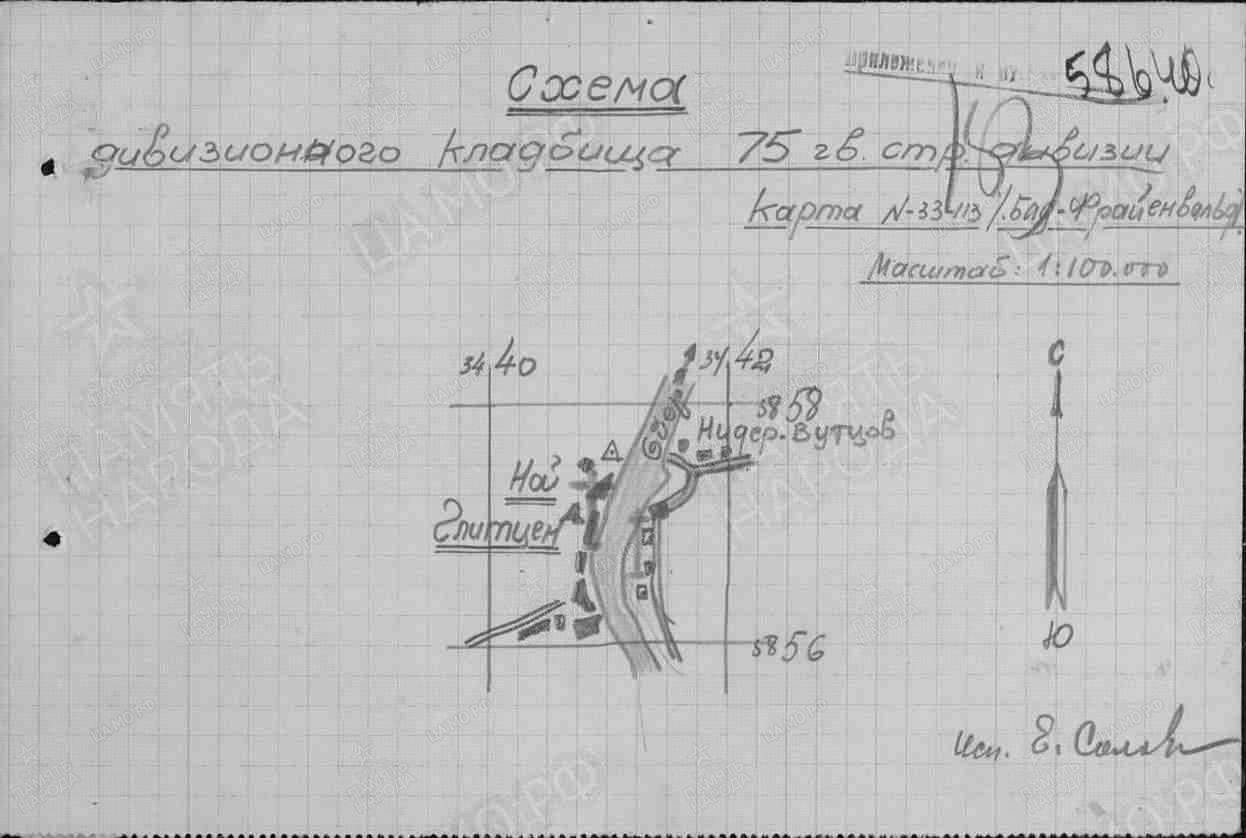 Схема
дивизионного кладбища 75 гв. стр. дивизии
Карта N-33-113 /.Бад-Фрайенвальд
Масштаб: 1:100.000
34 40
34 42
58 58
Нидер. Вутцов
Ной
Глитцен
58 56
С
Ю
Исп.
ЦАМО.РФ
ПАМЯТЬ
НАРОДА